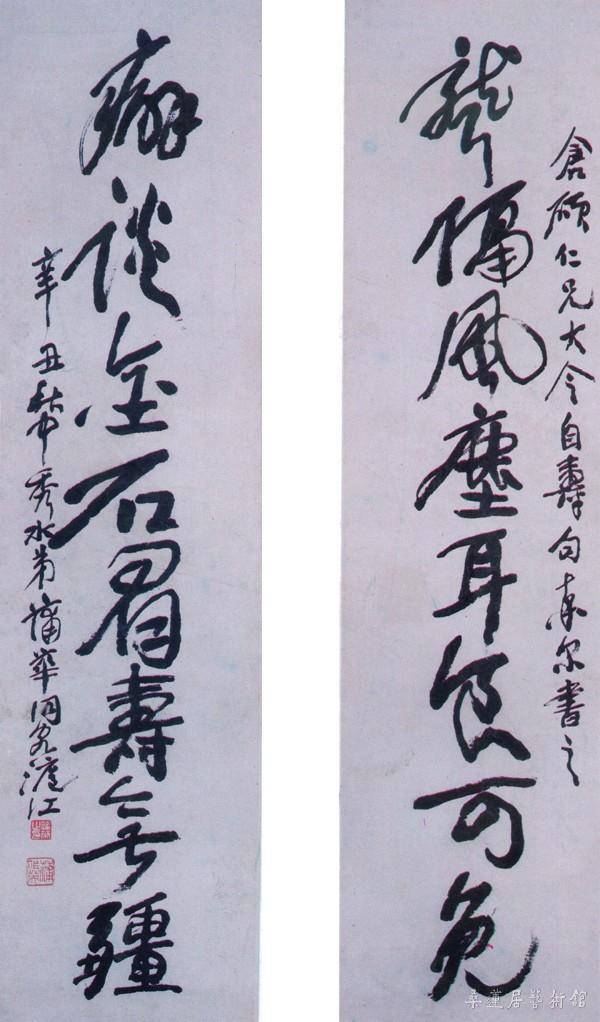 倉碩仁兄大令自壽句率尔書之
聾隔風塵耳食可免
癖談金石眉壽無疆
辛丑秋中秀水弟蒲華同客滬江
桑蓮居藝術館